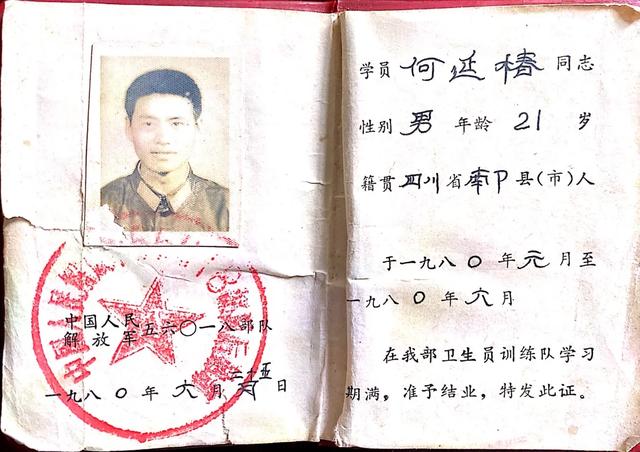 中国人民
解放军五六〇一八部队
一九八〇年六月二十五日
学员 何延椿 同志
性别 男 年龄 21 岁
籍贯 四川省南部县(市)人
于一九八〇年元月至
一九八〇年六月
在我部卫生员训练队学习
期满，准予结业，特发此证。